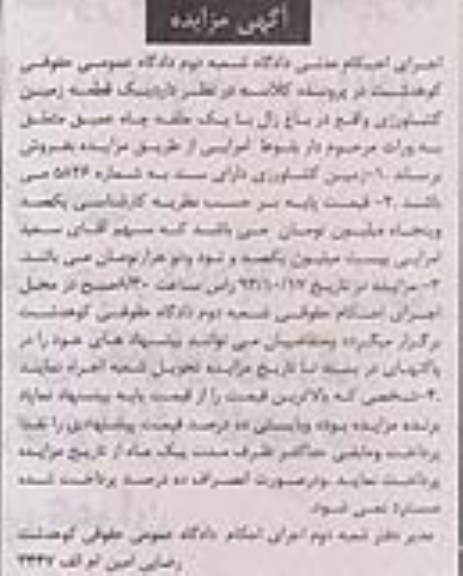 آگهی مزایده
اجرای احکام مدنی دادگاه شعبه دوم دادگاه عمومی حقوقی
کوهدشت در پرونده کلاسه در نظر دارد یک قطعه زمین
کشاورزی واقع در باغ زال با یک حلقه چاه عمیق متعلق
به وراث مرحوم دار بلوط امرایی از طریق مزایده بفروش
برساند ۱-زمین کشاورزی دارای سند به شماره ۵۸۲۶ می
باشد ۲- قیمت پایه بر حسب نظریه کارشناسی یکصد
وپنجاه میلیون تومان می باشد که سهم آقای سعید
امرایی بیست میلیون یکصد و نود ودو هزارتومان می باشد
۳-مزایده در تاریخ ۹۳/۱۰/۱۷ راس ساعت ۸/۳۰صبح در محل
اجرای احکام حقوقی شعبه دوم دادگاه حقوقی کوهدشت
برگزار میگردد ومتقاضیان می توانند پیشنهاد های خود را در
پاکتهای در بسته تا تاریخ مزایده تحویل شعبه اجراء نمایند
۴-شخصی که بالاترین قیمت را از قیمت پایه پیشنهاد نماید
برنده مزایده بوده وبایستی ده درصد قیمت پیشنهادی را نقدا
پرداخت ومابقی حداکثر ظرف مدت یک ماه از تاریخ مزایده
پرداخت نماید .ودرصورت انصراف ده درصد پرداخت شده
مسترد نمی شود.
مدیر دفتر شعبه دوم اجرای احکام دادگاه عمومی حقوقی کوهدشت
رضایی امین ام الف ۳۳۳۷